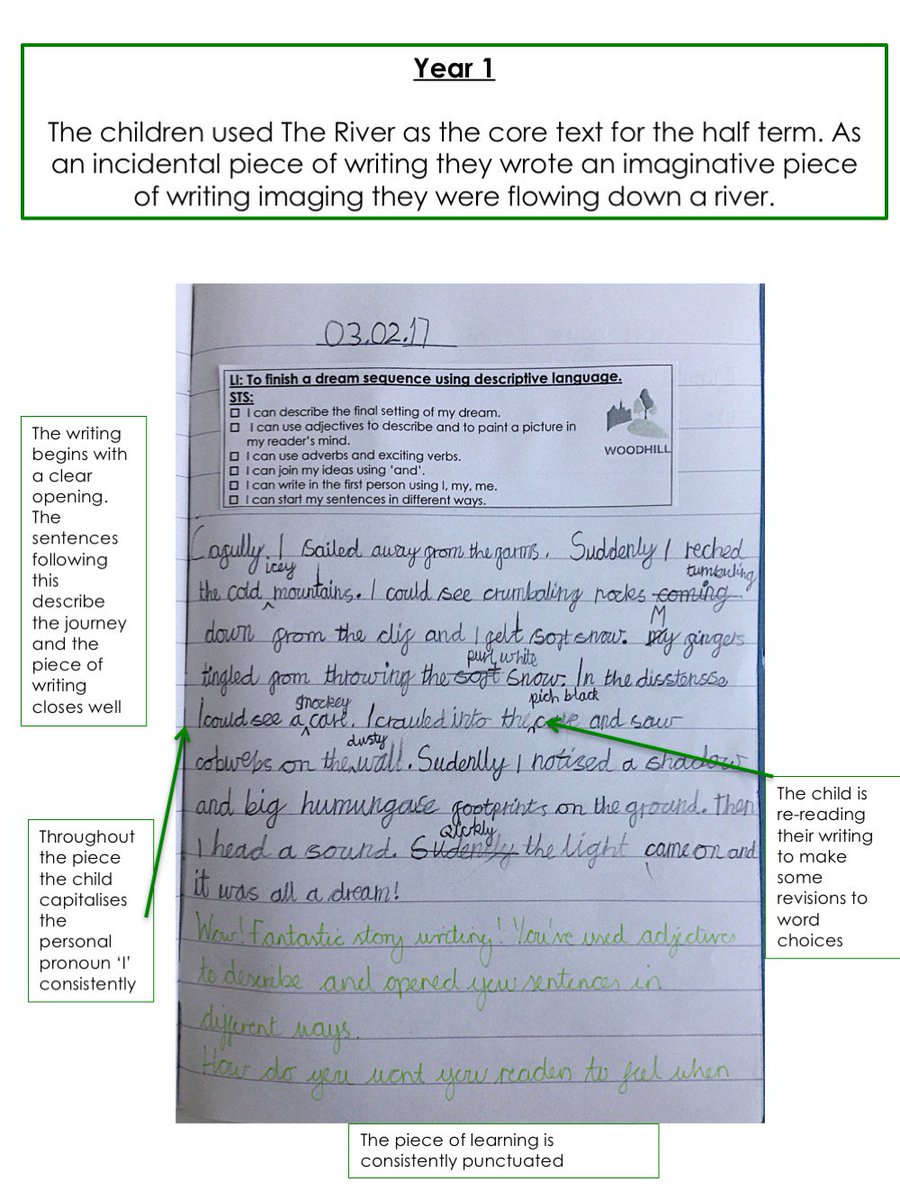 Year 1
The children used The River as the core text for the half term. As
an incidental piece of writing they wrote an imaginative piece
of writing imaging they were flowing down a river.
03.02.17
LI: To finish a dream sequence using descriptive language.
STS:
I can describe the final setting of my dream.
I can use adjectives to describe and to paint a picture in
my reader's mind.
I can use adverbs and exciting verbs.
I can join my ideas using 'and'.
I can write in the first person using I, my, me.
I can start my sentences in different ways.
WOODHILL
Cagully. I sailed away grom the garms. Suddenly I reched
icey tumbuling
the cold mountains. I could see crumbaling rocks coming
M
down grom the clif and I gelt sogt snow. My gingers
puri white
tingled grom throwing the sogt snow. In the disstensse
smokey pich black
I could see a cave. I crauled into the cave and saw
dusty
cobwebs on the wall. Sudenlly I notised a shadow
and big humungase footprints on the ground. Then
Qickly
I head a sound. Sudenlly the light came on and
it was all a dream!
Wow! Fantastic story writing! You've used adjectives
to describe and opened your sentences in
different ways.
How do you want you readers to feel when
The writing
begins with
a clear
opening.
The
sentences
following
this
describe
the journey
and the
piece of
writing
closes well
Throughout
the piece
the child
capitalises
the
personal
pronoun 'I'
consistently
The child is
re-reading
their writing
to make
some
revisions to
word
choices
The piece of learning is
consistently punctuated